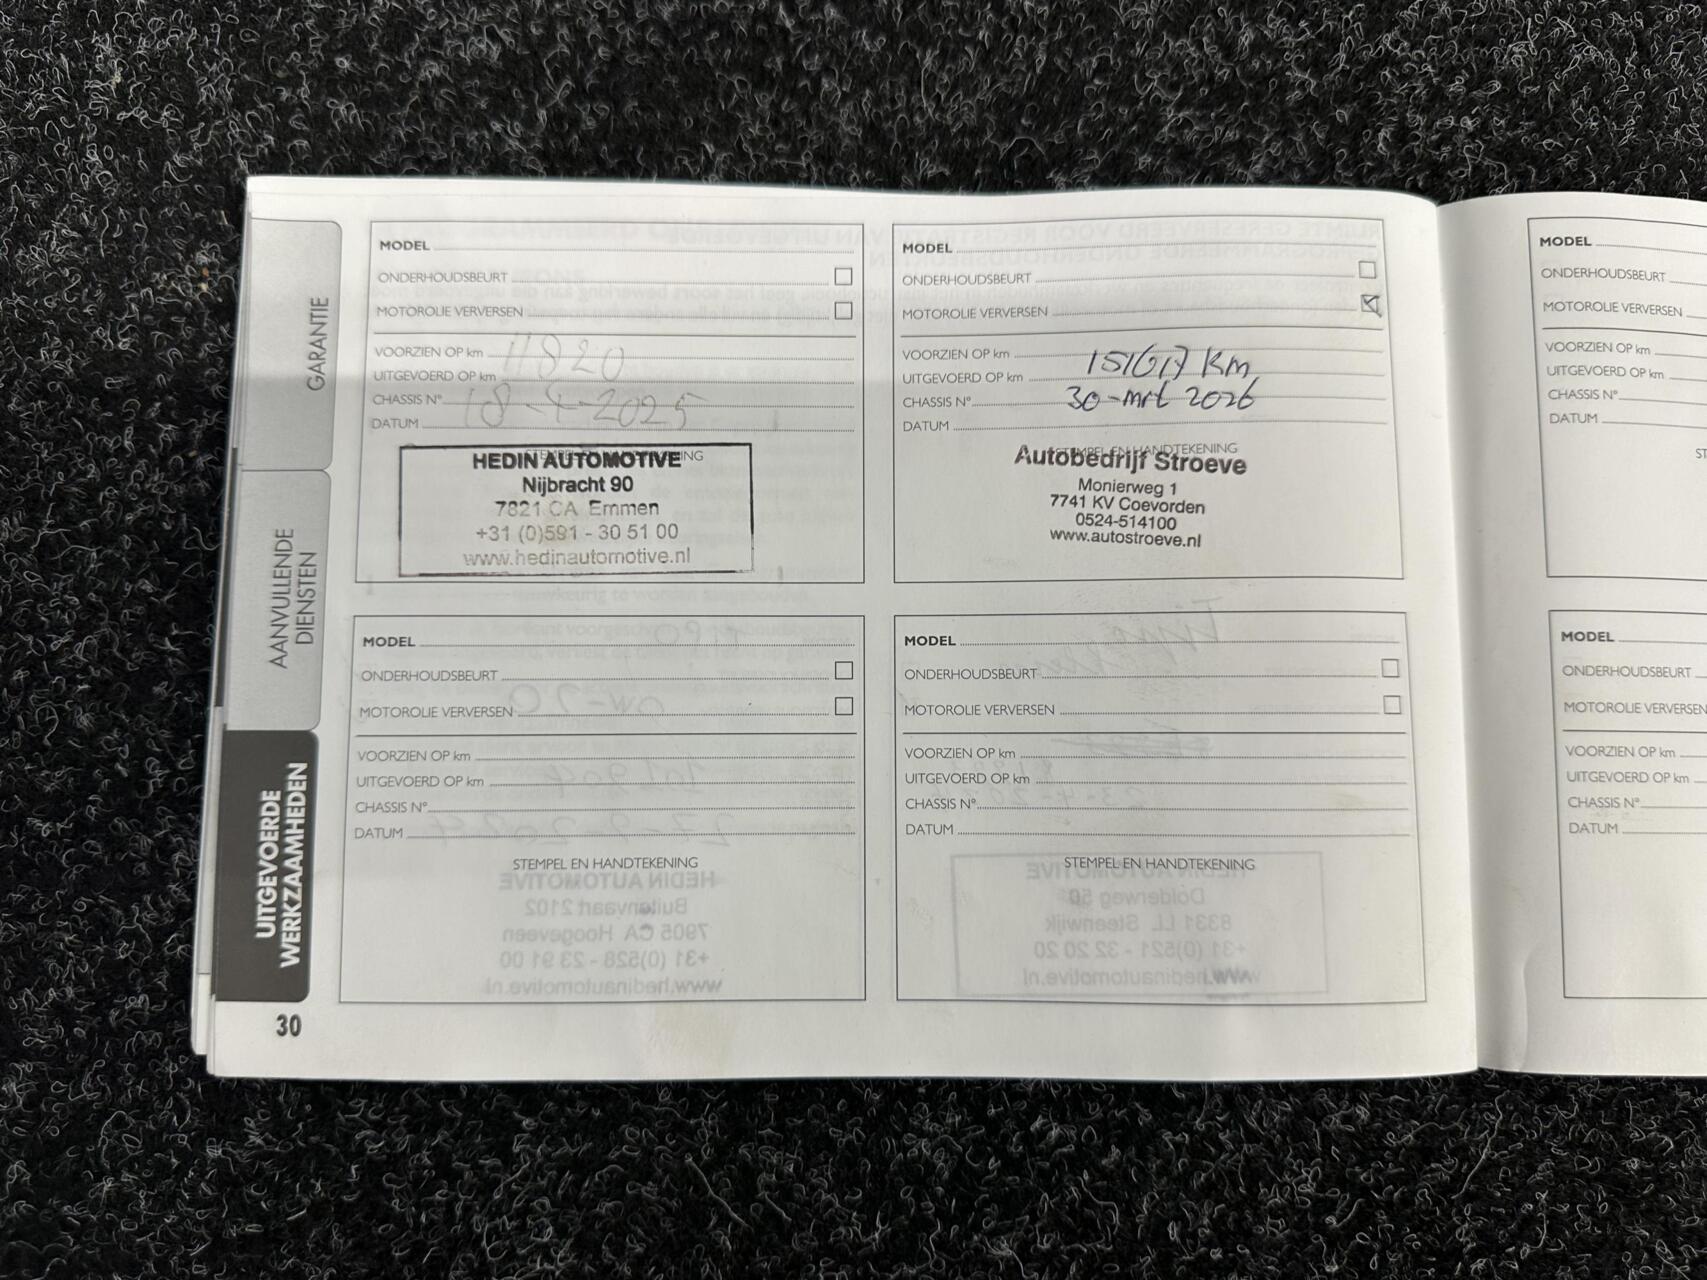 GARANTIE
AANVULLENDE
DIENSTEN
UITGEVOERDE
WERKZAAMHEDEN
30
MODEL
ONDERHOUDSBEURT
MOTOROLIE VERVERSEN
VOORZIEN OP km
UITGEVOERD OP km
CHASSIS N°
18-4-2025
DATUM
STEMPEL EN HANDTEKENING
HEDIN AUTOMOTIVE
Nijbracht 90
7821 CA Emmen
+31 (0)591 - 30 51 00
www.hedinautomotive.nl
MODEL
ONDERHOUDSBEURT
MOTOROLIE VERVERSEN
VOORZIEN OP km
UITGEVOERD OP km
km
CHASSIS N°
30-mrt 2026
DATUM
STEMPEL EN HANDTEKENING
Autobedrijf Stroeve
Monierweg 1
7741 KV Coevorden
0524-514100
www.autostroeve.nl
MODEL
ONDERHOUDSBEURT
MOTOROLIE VERVERSEN
VOORZIEN OP km
UITGEVOERD OP km
CHASSIS N°
DATUM
STEMPEL EN HANDTEKENING
MODEL
ONDERHOUDSBEURT
MOTOROLIE VERVERSEN
VOORZIEN OP km
UITGEVOERD OP km
CHASSIS N°
DATUM
STEMPEL EN HANDTEKENING
MODEL
ONDERHOUDSBEURT
MOTOROLIE VERVERSEN
VOORZIEN OP km
UITGEVOERD OP km
CHASSIS N°
DATUM
ST
MODEL
ONDERHOUDSBEURT
MOTOROLIE VERVERSEN
VOORZIEN OP km
UITGEVOERD OP km
CHASSIS N°
DATUM